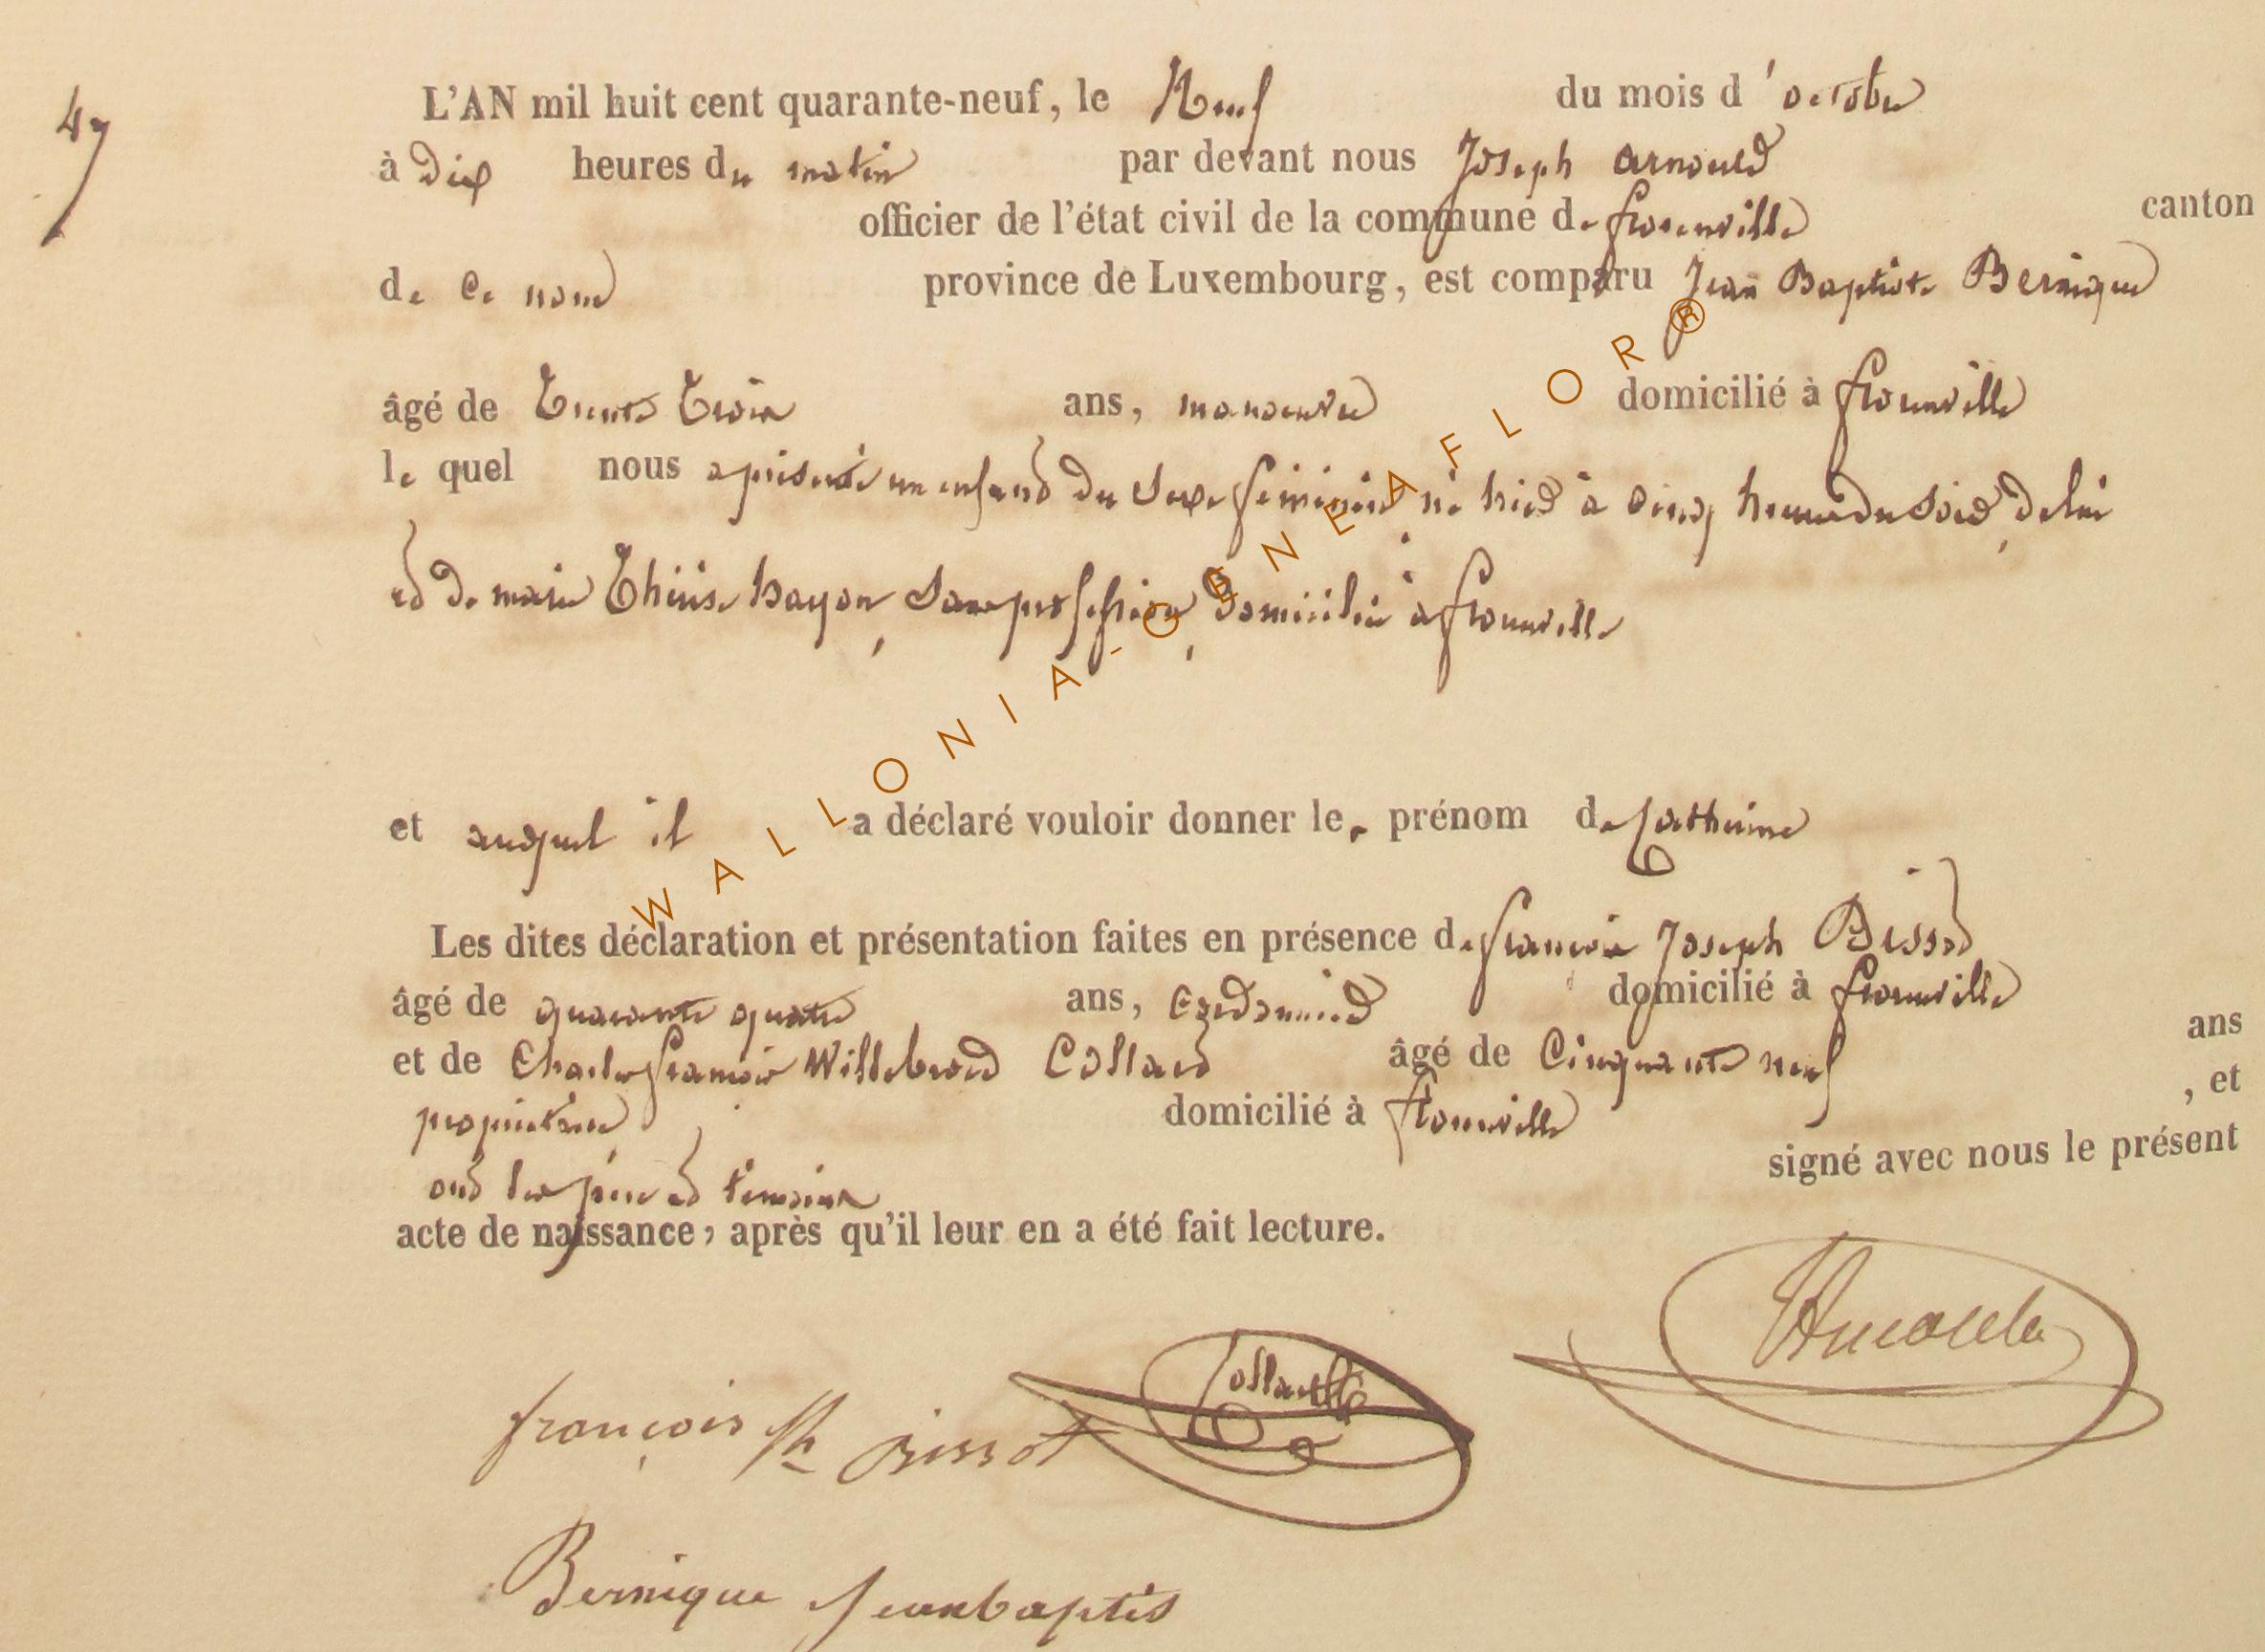 47
L'AN mil huit cent quarante-neuf, le Neuf du mois d'octobre
à dix heures du matin par devant nous Joseph Arnould
officier de l'état civil de la commune de florenville canton
de Ce nom province de Luxembourg, est comparu Jean Baptiste Bernique
âgé de Trente Trois ans, manoeuvre domicilié à florenville
le quel nous a présenté un enfant du sexe féminin né hier à cinq heures du soir, de lui
et de marie Thérèse hayon, sans profession, domiciliée à florenville
et auquel il a déclaré vouloir donner le prénom de Catherine
Les dites déclaration et présentation faites en présence de françois Joseph Bissot
âgé de quarante quatre ans, Cordonnier domicilié à florenville
et de Charles françois Willebrord Collard âgé de Cinquante neuf ans
propriétaire domicilié à florenville , et
ont les père et témoins signé avec nous le présent
acte de naissance, après qu'il leur en a été fait lecture.
françois Jh Bissot Collard Arnould
Bernique Jeanbaptis
WALLONIA-GENEAFLOR®